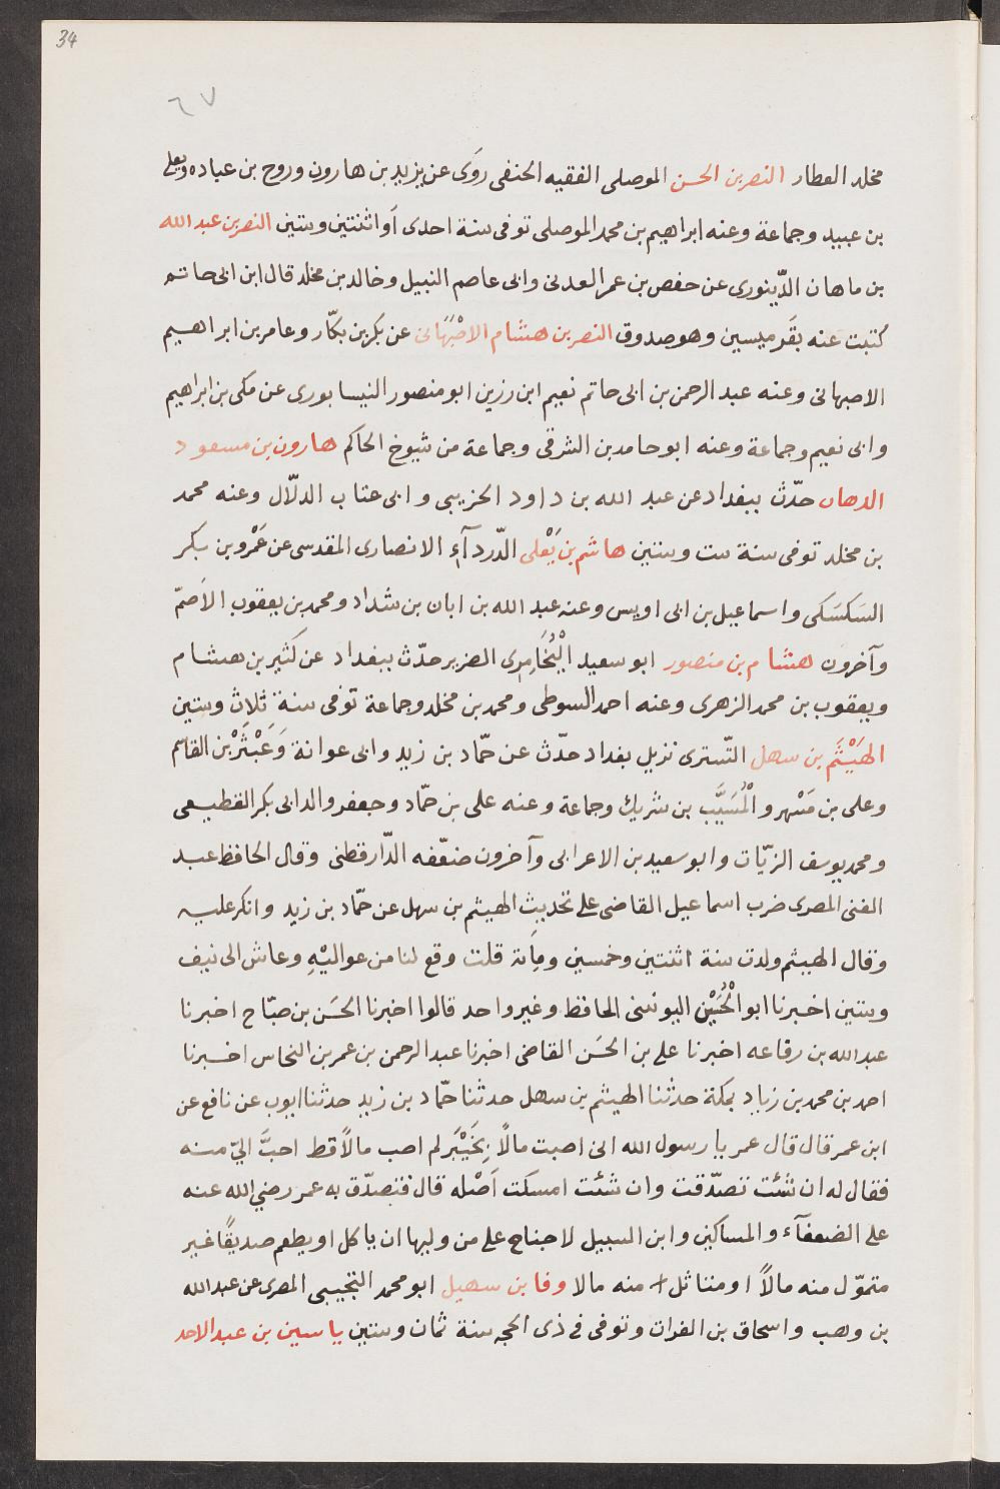 34
٦٧
مخلد العطار النصر بن الحسن الموصلى الفقيه الحنفى روَى عن يزيد بن هارون وروح بن عباده ويعلى
بن عبيد وجماعة وعنه ابراهيم بن محمد الموصلى توفى سنة احدى اَو اثنتين وستين النصر بن عبد الله
بن ماهان الدّينورى عن حفص بن عمر العدنى وابى عاصم النبيل وخالد بن مخلد قال ابن ابى حاتم
كتبت عنه بقَرميسين وهو صدوق النصر بن هشام الاصْبَهَانى عن بكر بن بكّار وعامر بن ابراهيم
الاصبهانى وعنه عبد الرحمن بن ابى حاتم نعيم ابن رزين ابو منصور النيسابورى عن مكى بن ابراهيم
وابى نعيم وجماعة وعنه ابو حامد بن الشرقى وجماعة من شيوخ الحاكم هارون بن مسعود
الدهان حدّث ببغداد عن عبد الله بن داود الخريبى وابى عتاب الدلّال وعنه محمد
بن مخلد توفى سنة ست وستين هاشم بن يَعْلى الدّردآء الانصارى المقدسى عن عَمْرو بن بكر
السَكسَكى واسماعيل بن ابى اويس وعنه عبد الله بن ابان بن شداد ومحمد بن يعقوب الاَصمّ
وآخرون هشام بن منصور ابو سعيد الضرير حدّث ببغداد عن كَثير بن هشام
ويعقوب بن محمد الزهرى وعنه احمد السوطى ومحمد بن مخلد وجماعة توفى سنة ثلاث وستين
الهَيْثَم بن سهل التّسترى نزيل بغداد حدّث عن حمّاد بن زيد وابى عوانة وَعَبْثَرْ بن القاسم
وعلى بن مَسْهر و الْمُسَيَّب بن شريك وجماعة وعنه على بن حمّاد وجعفر والد ابى بكر القطيعى
ومحمد يوسف الزيّات وابو سعيد بن الاعرابى وآخرون ضعّفه الدّارقطنى وقال الحافظ عبد
الغنى المصرى ضرب اسماعيل القاضى على تحديث الهيثم بن سهل عن حمّاد بن زيد وانكر عليه
وقال الهيثم ولدت سنة اثنتين وخمسين ومِانة قلت وقع لنا من عواليْهِ وعاش الى نيف
وستين اخبرنا ابو الْحُسَيْن اليونينى الحافظ وغير واحد قالوا اخبرنا الحَسَن بن صبّاح اخبرنا
عبد الله بن رفاعه اخبرنا على بن الحَسَن القاضى اخبرنا عبد الرحمن بن عمر بن النحاس اخبرنا
احمد بن محمد بن زياد بمكة حدثنا الهيثم بن سهل حدثنا حمّاد بن زيد حدثنا ايوب عن نافع عن
ابن عمر قال قال عمر يا رسول الله انى اصبت مالًا بِخَيْبَر لم اصب مالًا قط احبَّ اليّ منه
فقال له ان شئت تصدّقت وان شئت امسكت اَصْله قال فتصدّق به عمر رضي الله عنه
على الضعفآء والمساكين وابن السبيل لا جناح على من وليها ان ياكل او يطعم صديقًا غير
متموّل منه مالاً او متاثل منه مالا وفا بن سهيل ابو محمد التجيبى المصرى عن عبد الله
بن وهب واسحاق بن الفرات وتوفى فى ذى الحجه سنة ثمان وستين ياسين بن عبد الاحد